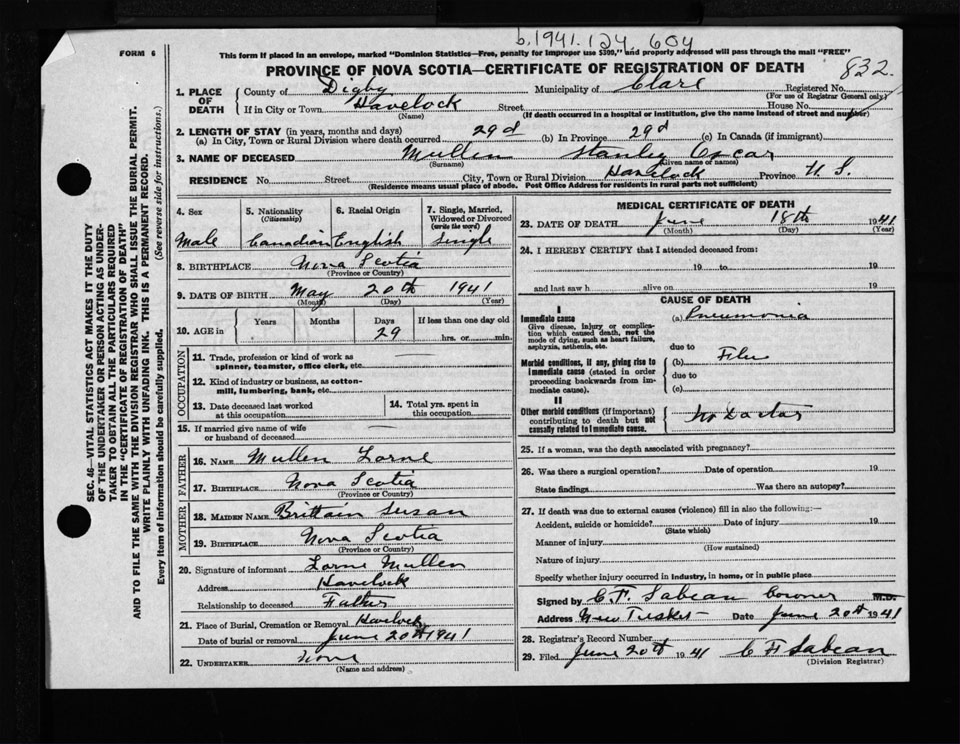 b.1941.124 604
FORM 6
This form if placed in an envelope, marked "Dominion Statistics—Free, penalty for improper use $300," and properly addressed will pass through the mail "FREE"
PROVINCE OF NOVA SCOTIA—CERTIFICATE OF REGISTRATION OF DEATH
832
1. PLACE OF DEATH
County of Digby Municipality of Clare Registered No.
(For use of Registrar General only)
If in City or Town Havelock Street House No.
(Name) (If death occurred in a hospital or institution, give the name instead of street and number)
2. LENGTH OF STAY (in years, months and days)
(a) In City, Town or Rural Division where death occurred 29d (b) In Province 29d (c) In Canada (if immigrant)
3. NAME OF DECEASED Mullen Stanley Oscar
(Surname) (Given name or names)
RESIDENCE No. Street City, Town or Rural Division Havelock Province N. S.
(Residence means usual place of abode. Post Office Address for residents in rural parts not sufficient)
4. Sex
Male
5. Nationality (Citizenship)
Canadian
6. Racial Origin
English
7. Single, Married, Widowed or Divorced (write the word)
Single
8. BIRTHPLACE Nova Scotia
(Province or Country)
9. DATE OF BIRTH May 20th 1941
(Month) (Day) (Year)
10. AGE in Years Months Days If less than one day old
29 hrs. or min.
OCCUPATION
11. Trade, profession or kind of work as spinner, teamster, office clerk, etc. —
12. Kind of industry or business, as cotton-mill, lumbering, bank, etc. —
13. Date deceased last worked at this occupation
14. Total yrs. spent in this occupation
15. If married give name of wife or husband of deceased —
FATHER
16. NAME Mullen Lorne
17. BIRTHPLACE Nova Scotia
(Province or Country)
MOTHER
18. MAIDEN NAME Brittain Susan
19. BIRTHPLACE Nova Scotia
(Province or Country)
20. Signature of informant Lorne Mullen
Address Havelock
Relationship to deceased Father
21. Place of Burial, Cremation or Removal Havelock
Date of burial or removal June 20th 1941
22. UNDERTAKER None
(Name and address)
MEDICAL CERTIFICATE OF DEATH
23. DATE OF DEATH June 18th 1941
(Month) (Day) (Year)
24. I HEREBY CERTIFY that I attended deceased from:
19 to 19
and last saw h alive on 19
CAUSE OF DEATH
I
Immediate cause (a) Pneumonia
Give disease, injury or complication which caused death, not the mode of dying, such as heart failure, asphyxia, asthenia, etc.
due to
Morbid conditions, if any, giving rise to immediate cause (stated in order proceeding backwards from immediate cause).
(b) Flu
due to
(c)
II
Other morbid conditions (if important) contributing to death but not causally related to immediate cause.
No Doctor
25. If a woman, was the death associated with pregnancy?
26. Was there a surgical operation? Date of operation 19
State findings Was there an autopsy?
27. If death was due to external causes (violence) fill in also the following:—
Accident, suicide or homicide? Date of injury 19
(State which)
Manner of injury
(How sustained)
Nature of injury
Specify whether injury occurred in industry, in home, or in public place
Signed by C. F. Sabean Coroner M.D.
Address New Tusket Date June 20th 1941
28. Registrar's Record Number
29. Filed June 20th 1941 C F Sabean
(Division Registrar)
SEC. 46—VITAL STATISTICS ACT MAKES IT THE DUTY
OF THE UNDERTAKER OR PERSON ACTING AS UNDER-
TAKER TO OBTAIN ALL THE PARTICULARS REQUIRED
IN THE "CERTIFICATE OF REGISTRATION OF DEATH"
AND TO FILE THE SAME WITH THE DIVISION REGISTRAR WHO SHALL ISSUE THE BURIAL PERMIT.
WRITE PLAINLY WITH UNFADING INK. THIS IS A PERMANENT RECORD.
Every item of information should be carefully supplied. (See reverse side for instructions.)